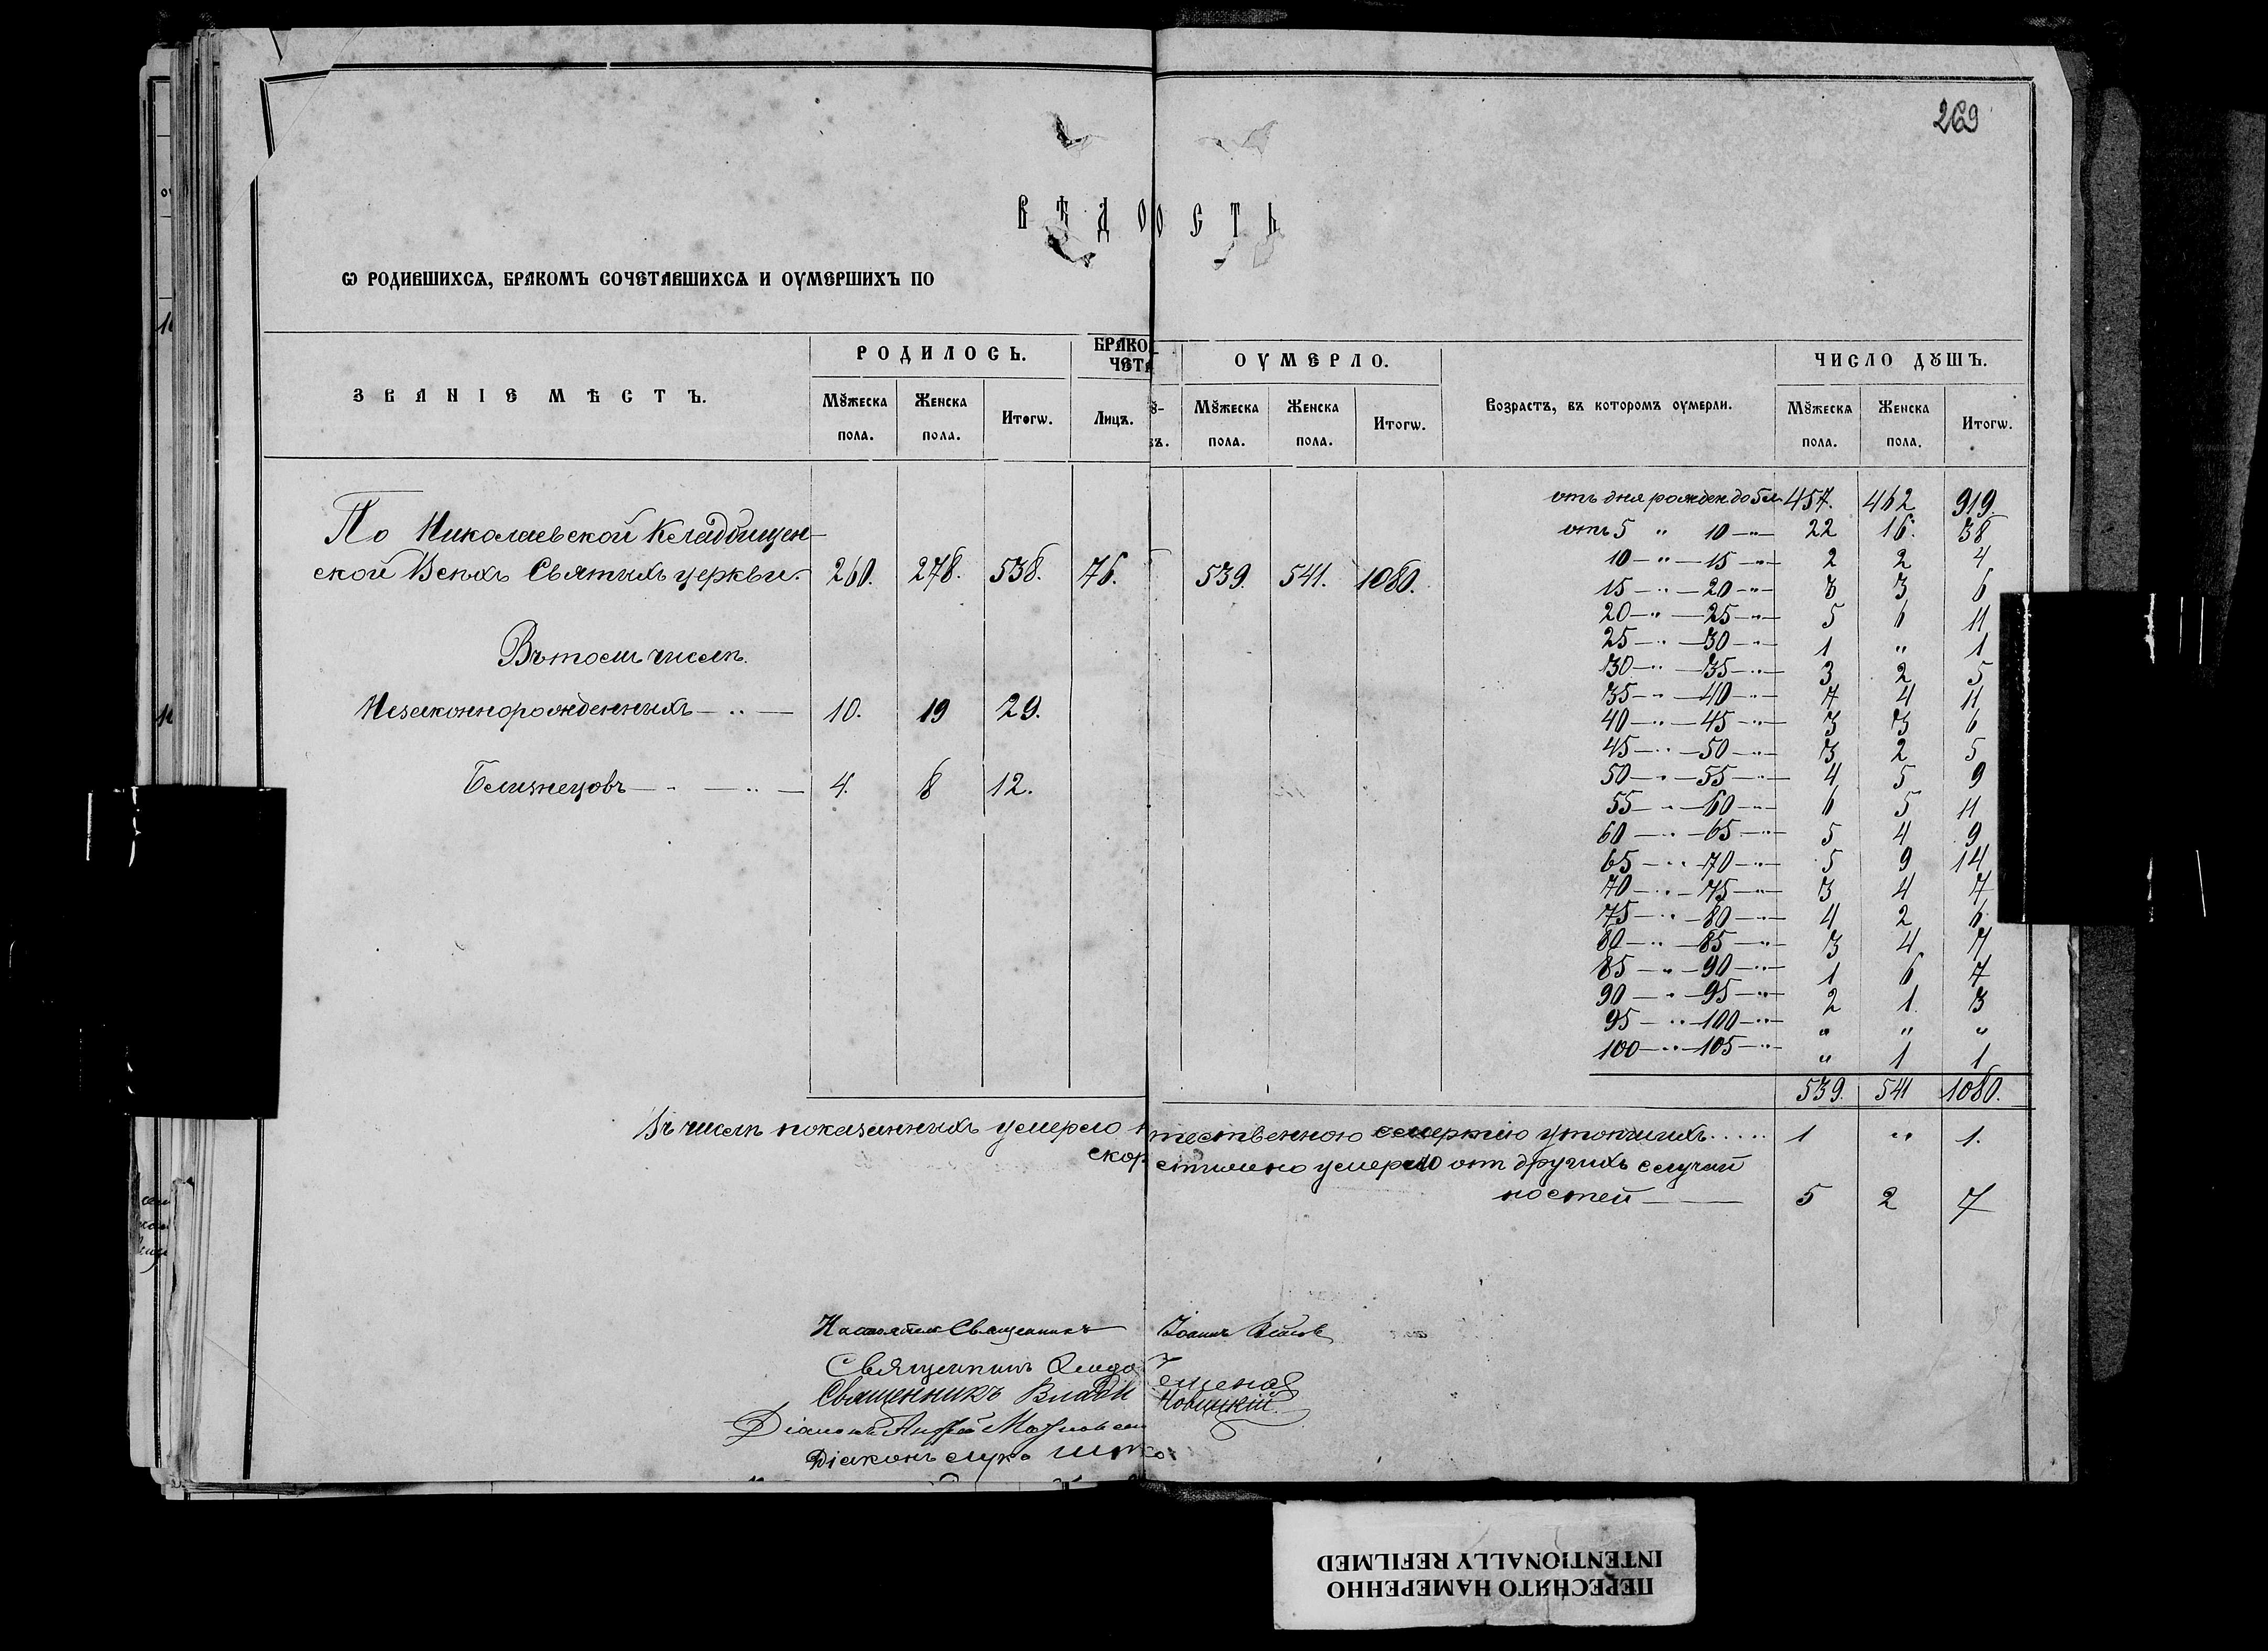 269
ВѢДО ОСТЬ
Ѡ РОДИВШИХСѦ, БРАКОМЪ СОЧЕТАВШИХСѦ И ОУМЕРШИХЪ ПО
ЗВАНІЕ МѢСТЪ. РОДИЛОСЬ. БРАКО ОУМЕРЛО. Возрастъ, въ которомъ оумерли. ЧИСЛО ДꙊШЪ.
ЧЕТА
Мꙋжеска Женска Итогѡ. Лицъ. Мꙋжеска Женска Итогѡ. Мꙋжеска Женска Итогѡ.
пола. пола. въ. пола. пола. пола. пола.
отъ дня рожден. до 5 л 457. 462 919.
По Николаевской Кладбищен-
отъ 5 " 10 —"— 22 16. 38
ской Всѣхъ Святыхъ церкви. 260. 278. 538. 76. 539. 541. 1080.
10 —"— 15 —"— 2 2 4
15 —"— 20 —"— 3 3 6
20 —"— 25 —"— 5 6 11
25 —"— 30 —"— 1 " 1
Въ томъ числѣ.
30 —"— 35 —"— 3 2 5
35 —"— 40 —"— 7 4 11
Незаконнорожденныхъ — .. — 10. 19 29.
40 —"— 45 —"— 3 3 6
45 —"— 50 —"— 3 2 5
50 —"— 55 —"— 4 5 9
Близнецовъ — - — .. — 4. 8 12.
55 —"— 60 —"— 6 5 11
60 —"— 65 —"— 5 4 9
65 —"— 70 —"— 5 9 14
70 —"— 75 —"— 3 4 7
75 —"— 80 —"— 4 2 6
80 —"— 85 —"— 3 4 7
85 —"— 90 —"— 1 6 7
90 —"— 95 —"— 2 1 3
95 —"— 100 —"— " " "
100 —"— 105 —"— " 1 1
539. 541 1080.
Въ числѣ показанныхъ умерло тественною смертію утопшихъ..... 1 " 1.
скор стижно умерло от другихъ случай
ностей — 5 2 7
Священникъ
Іоаннъ
Священникъ
Священникъ Влади Новицкій
Діаконъ Андрей
Діаконъ Лука
ПЕРЕСНЯТО НАМЕРЕННО
INTENTIONALLY REFILMED